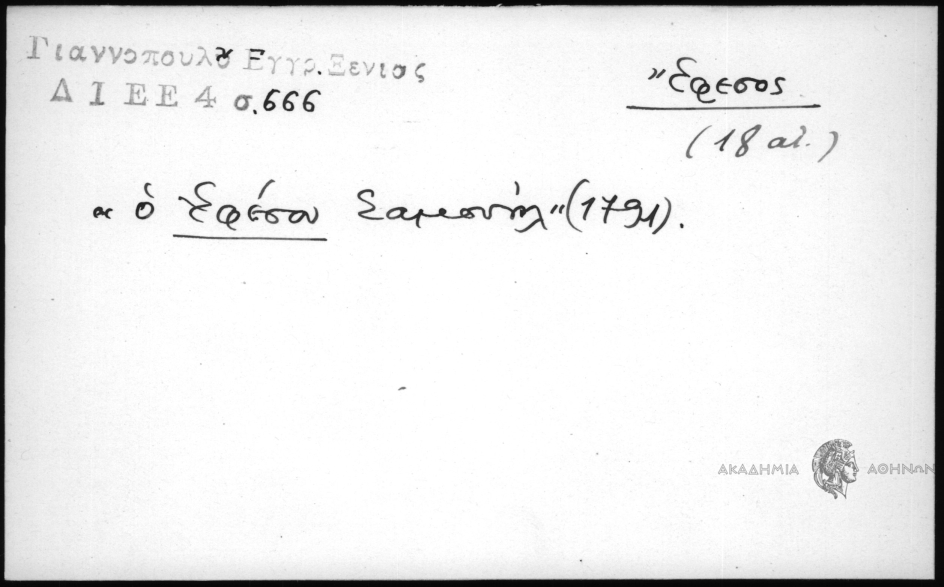 Γιαννοπούλου Εγγρ. Ξενιας
Δ Ι Ε Ε 4 σ.666
Ἔφεσος
(18 αἰ.)
« ὁ Ἐφέσου Σαμουὴλ" (1791).
ΑΚΑΔΗΜΙΑ ΑΘΗΝΩΝ